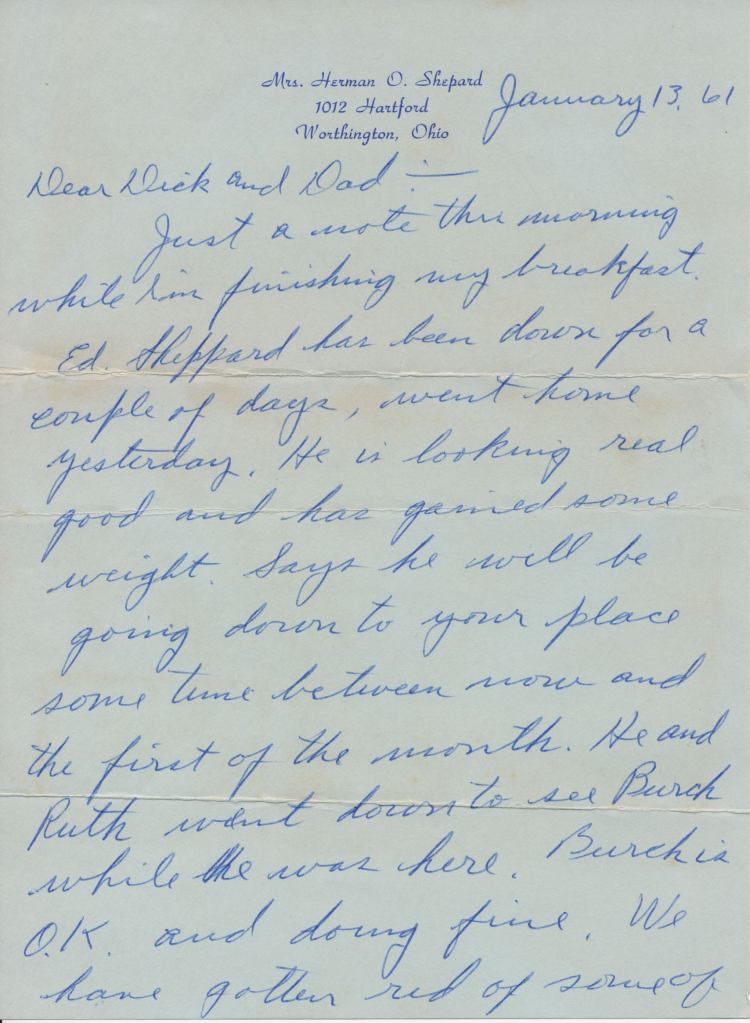 Mrs. Herman O. Shepard
1012 Hartford
Worthington, Ohio
January 13, 61
Dear Dick and Dad :—
Just a note this morning
while I'm finishing my breakfast.
Ed. Sheppard has been down for a
couple of days, went home
yesterday. He is looking real
good and has gained some
weight. Says he will be
going down to your place
some time between now and
the first of the month. He and
Ruth went down to see Burch
while he was here. Burch is
O.K. and doing fine. We
have gotten rid of some of